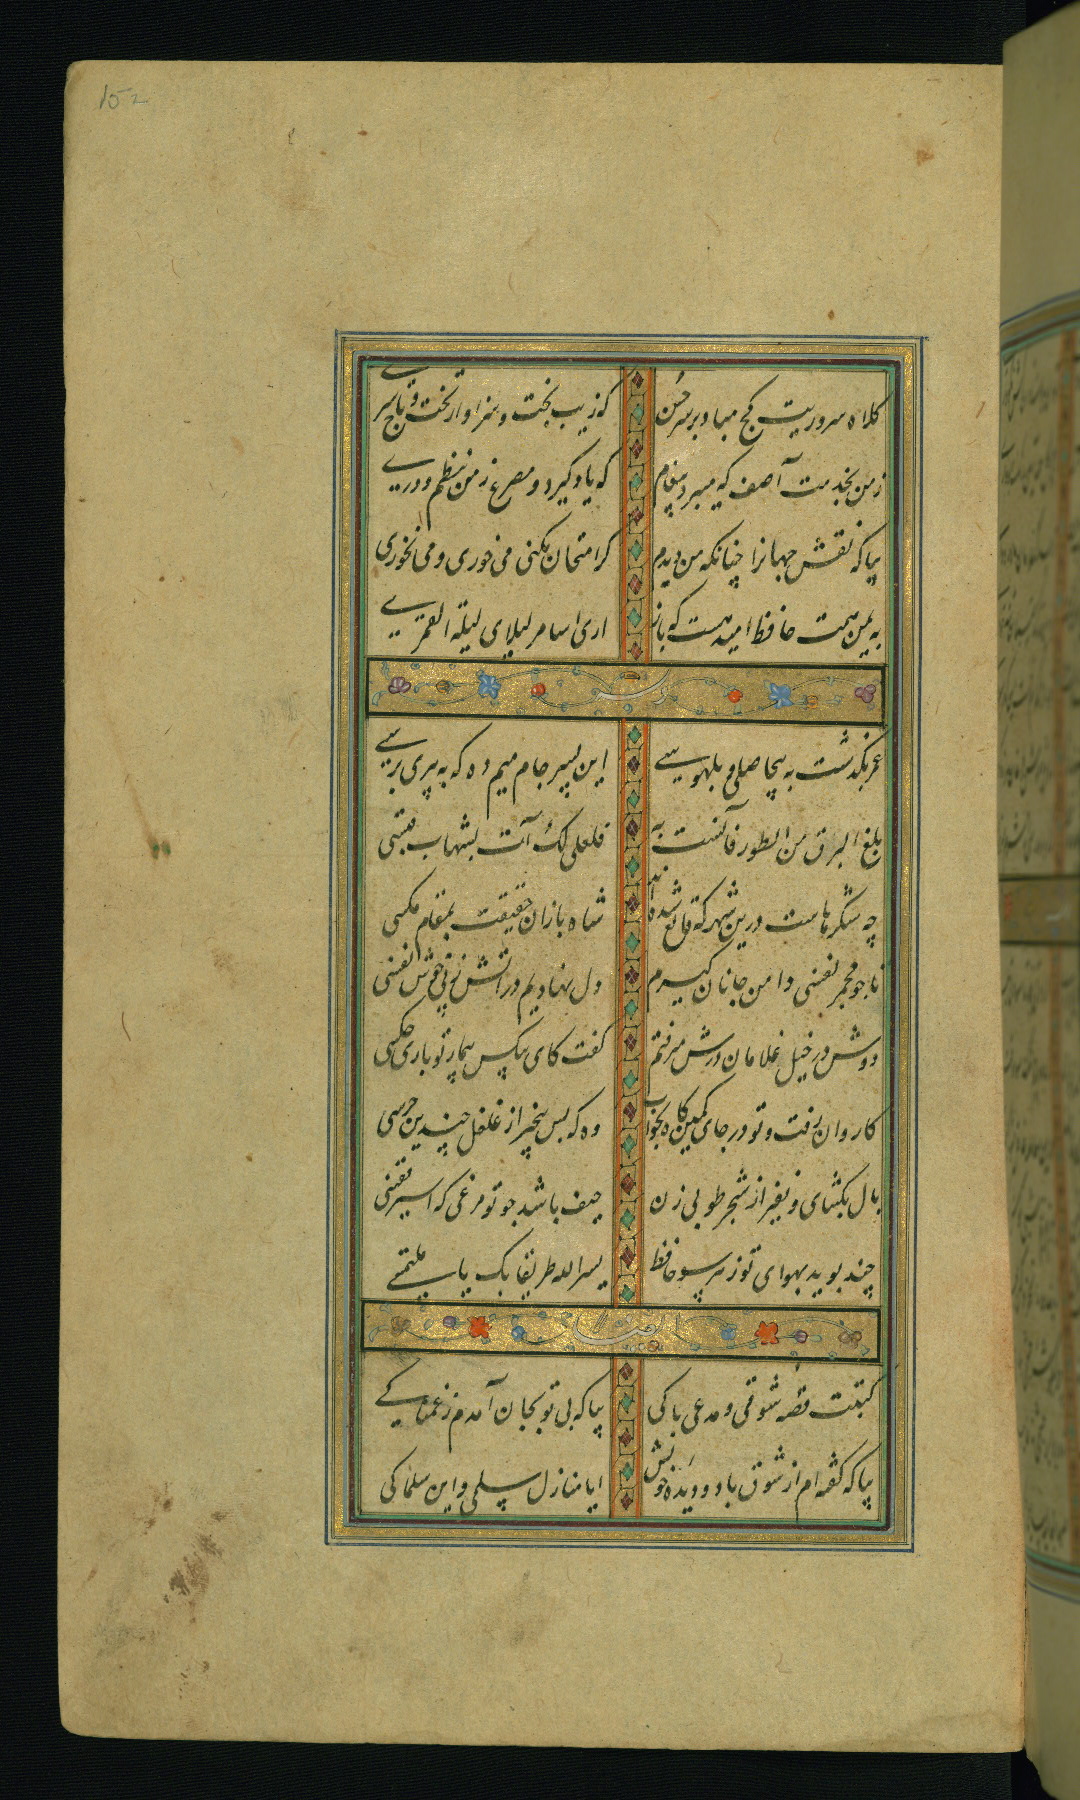 152
کلاه سروریت کج مباد بر سر حسن که زیب بخت و سزاوار تخت و تاج سری
ز من بخدمت آصف که میبرد پیغام که یاد کیرد دو مصرع ز من بنظم دری
بیا که نقش جهانرا چنانکه من دیدم کر امتحان بکنی می خوری و می نخوری
به یمن همت حافظ امید هست که باز اری اسامر لیلای لیلة القمری
عمر بکذشت به بیحاصلی و بلهوسی ای پسر جام میم ده که به پیری برسی
بلغ البرق من الطور فآنست به فلعلی لک آت بشهاب قبسی
چه شکرهاست درین شهر که قانع شده اند شاه بازان حقیقت بمقام مکسی
تا چو مجمر نفسی دامن جانان کیرم دل نهادیم در اتش ز پی خوش نفسی
دوش در خیل غلامان درش میرفتم کفت کای بیکس بیمار تو باری چکسی
کاروان رفت و تو در جای کمین کاه بخواب وه که بس بیخبر از غلغل چندین جرسی
بال بکشای و نفیر از شجر طوبی زن حیف باشد چو تو مرغی که اسیر قفسی
چند بوید بهوای تو ز هر سو حافظ یسر الله طریقا بک یا ملتمسی
ایضا
کتبت قصه شوقی و مدمعی باکی بیا که بی تو بجان آمدم ز غمناکی
بیا که کفته ام از شوق با دو دیده خویش ایا منازل سلمی و این سلماکی